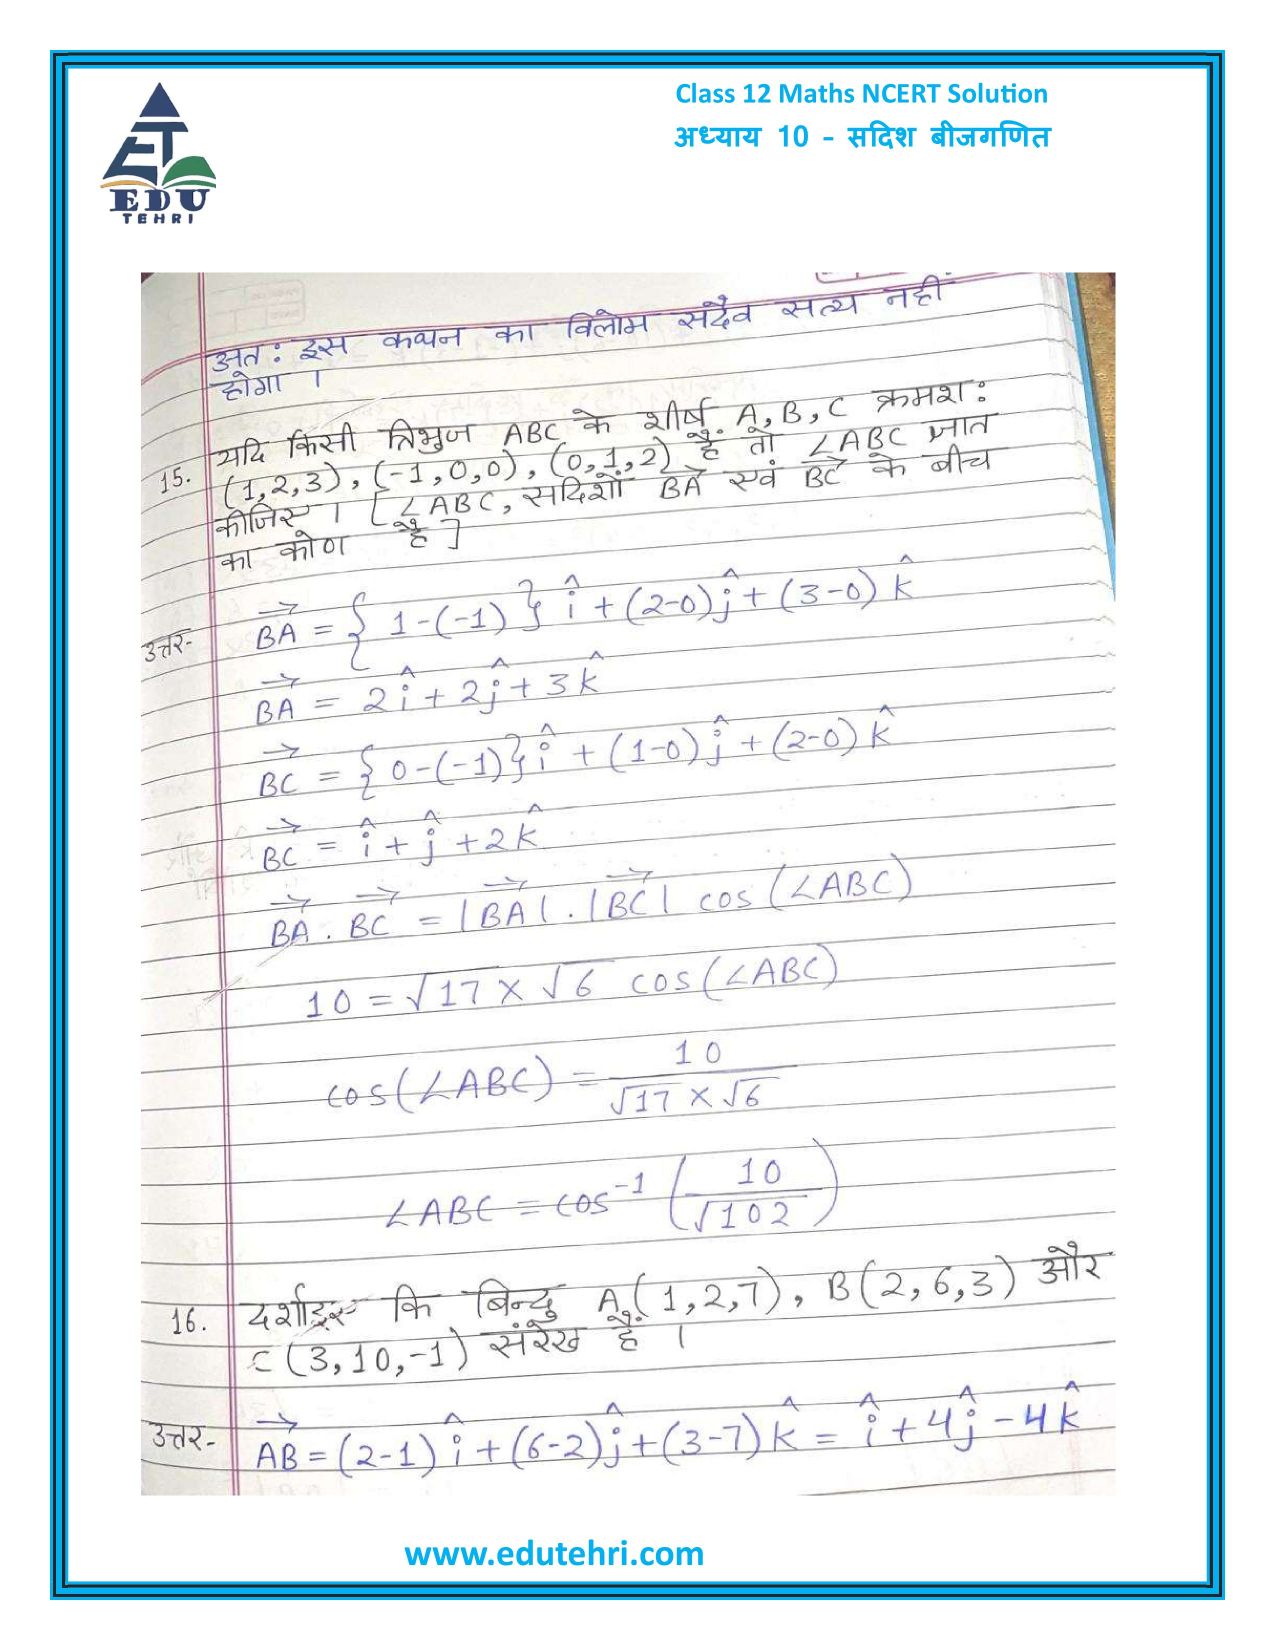 EDU
TEHRI
Class 12 Maths NCERT Solution
अध्याय 10 - सदिश बीजगणित
अतः इस कथन का विलोम सदैव सत्य नहीं
होगा ।
15. यदि किसी त्रिभुज ABC के शीर्ष A, B, C क्रमशः
(1,2,3), (-1,0,0), (0,1,2) हैं तो ∠ABC ज्ञात
कीजिए । [∠ABC, सदिशों BA→ एवं BC→ के बीच
का कोण है]
उत्तर- BA→ = {1-(-1)} î + (2-0)ĵ + (3-0) k̂
BA→ = 2î + 2ĵ + 3k̂
BC→ = {0-(-1)}î + (1-0)ĵ + (2-0) k̂
BC→ = î + ĵ + 2k̂
BA→ . BC→ = |BA→| . |BC→| cos (∠ABC)
10 = √17 × √6 cos (∠ABC)
cos(∠ABC) = 10 / √17 × √6
∠ABC = cos⁻¹ (10 / √102)
16. दर्शाइए कि बिन्दु A (1,2,7), B(2,6,3) और
C (3,10,-1) संरेख हैं ।
उत्तर- AB→ = (2-1) î + (6-2)ĵ + (3-7) k̂ = î + 4ĵ - 4k̂
www.edutehri.com